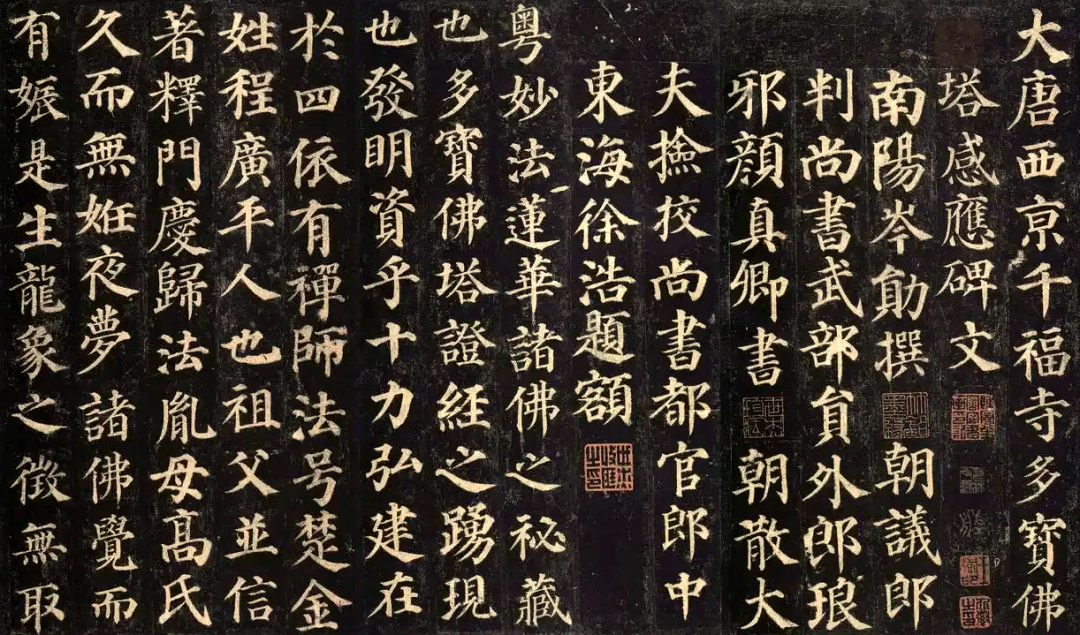 大唐西亰千福寺多寶佛
塔感應碑文
南陽岑勛撰 朝議郎
判尚書武部員外郎琅
邪顏真卿書 朝散大
夫撿挍尚書都官郎中
東海徐浩題額
粵妙法蓮華諸佛之祕藏
也多寶佛塔證經之踴現
也發明資乎十力弘建在
於四依有禪師法号楚金
姓程廣平人也祖父並信
著釋門慶歸法胤母髙氏
久而無姙夜夢諸佛覺而
有娠是生龍象之徵無取